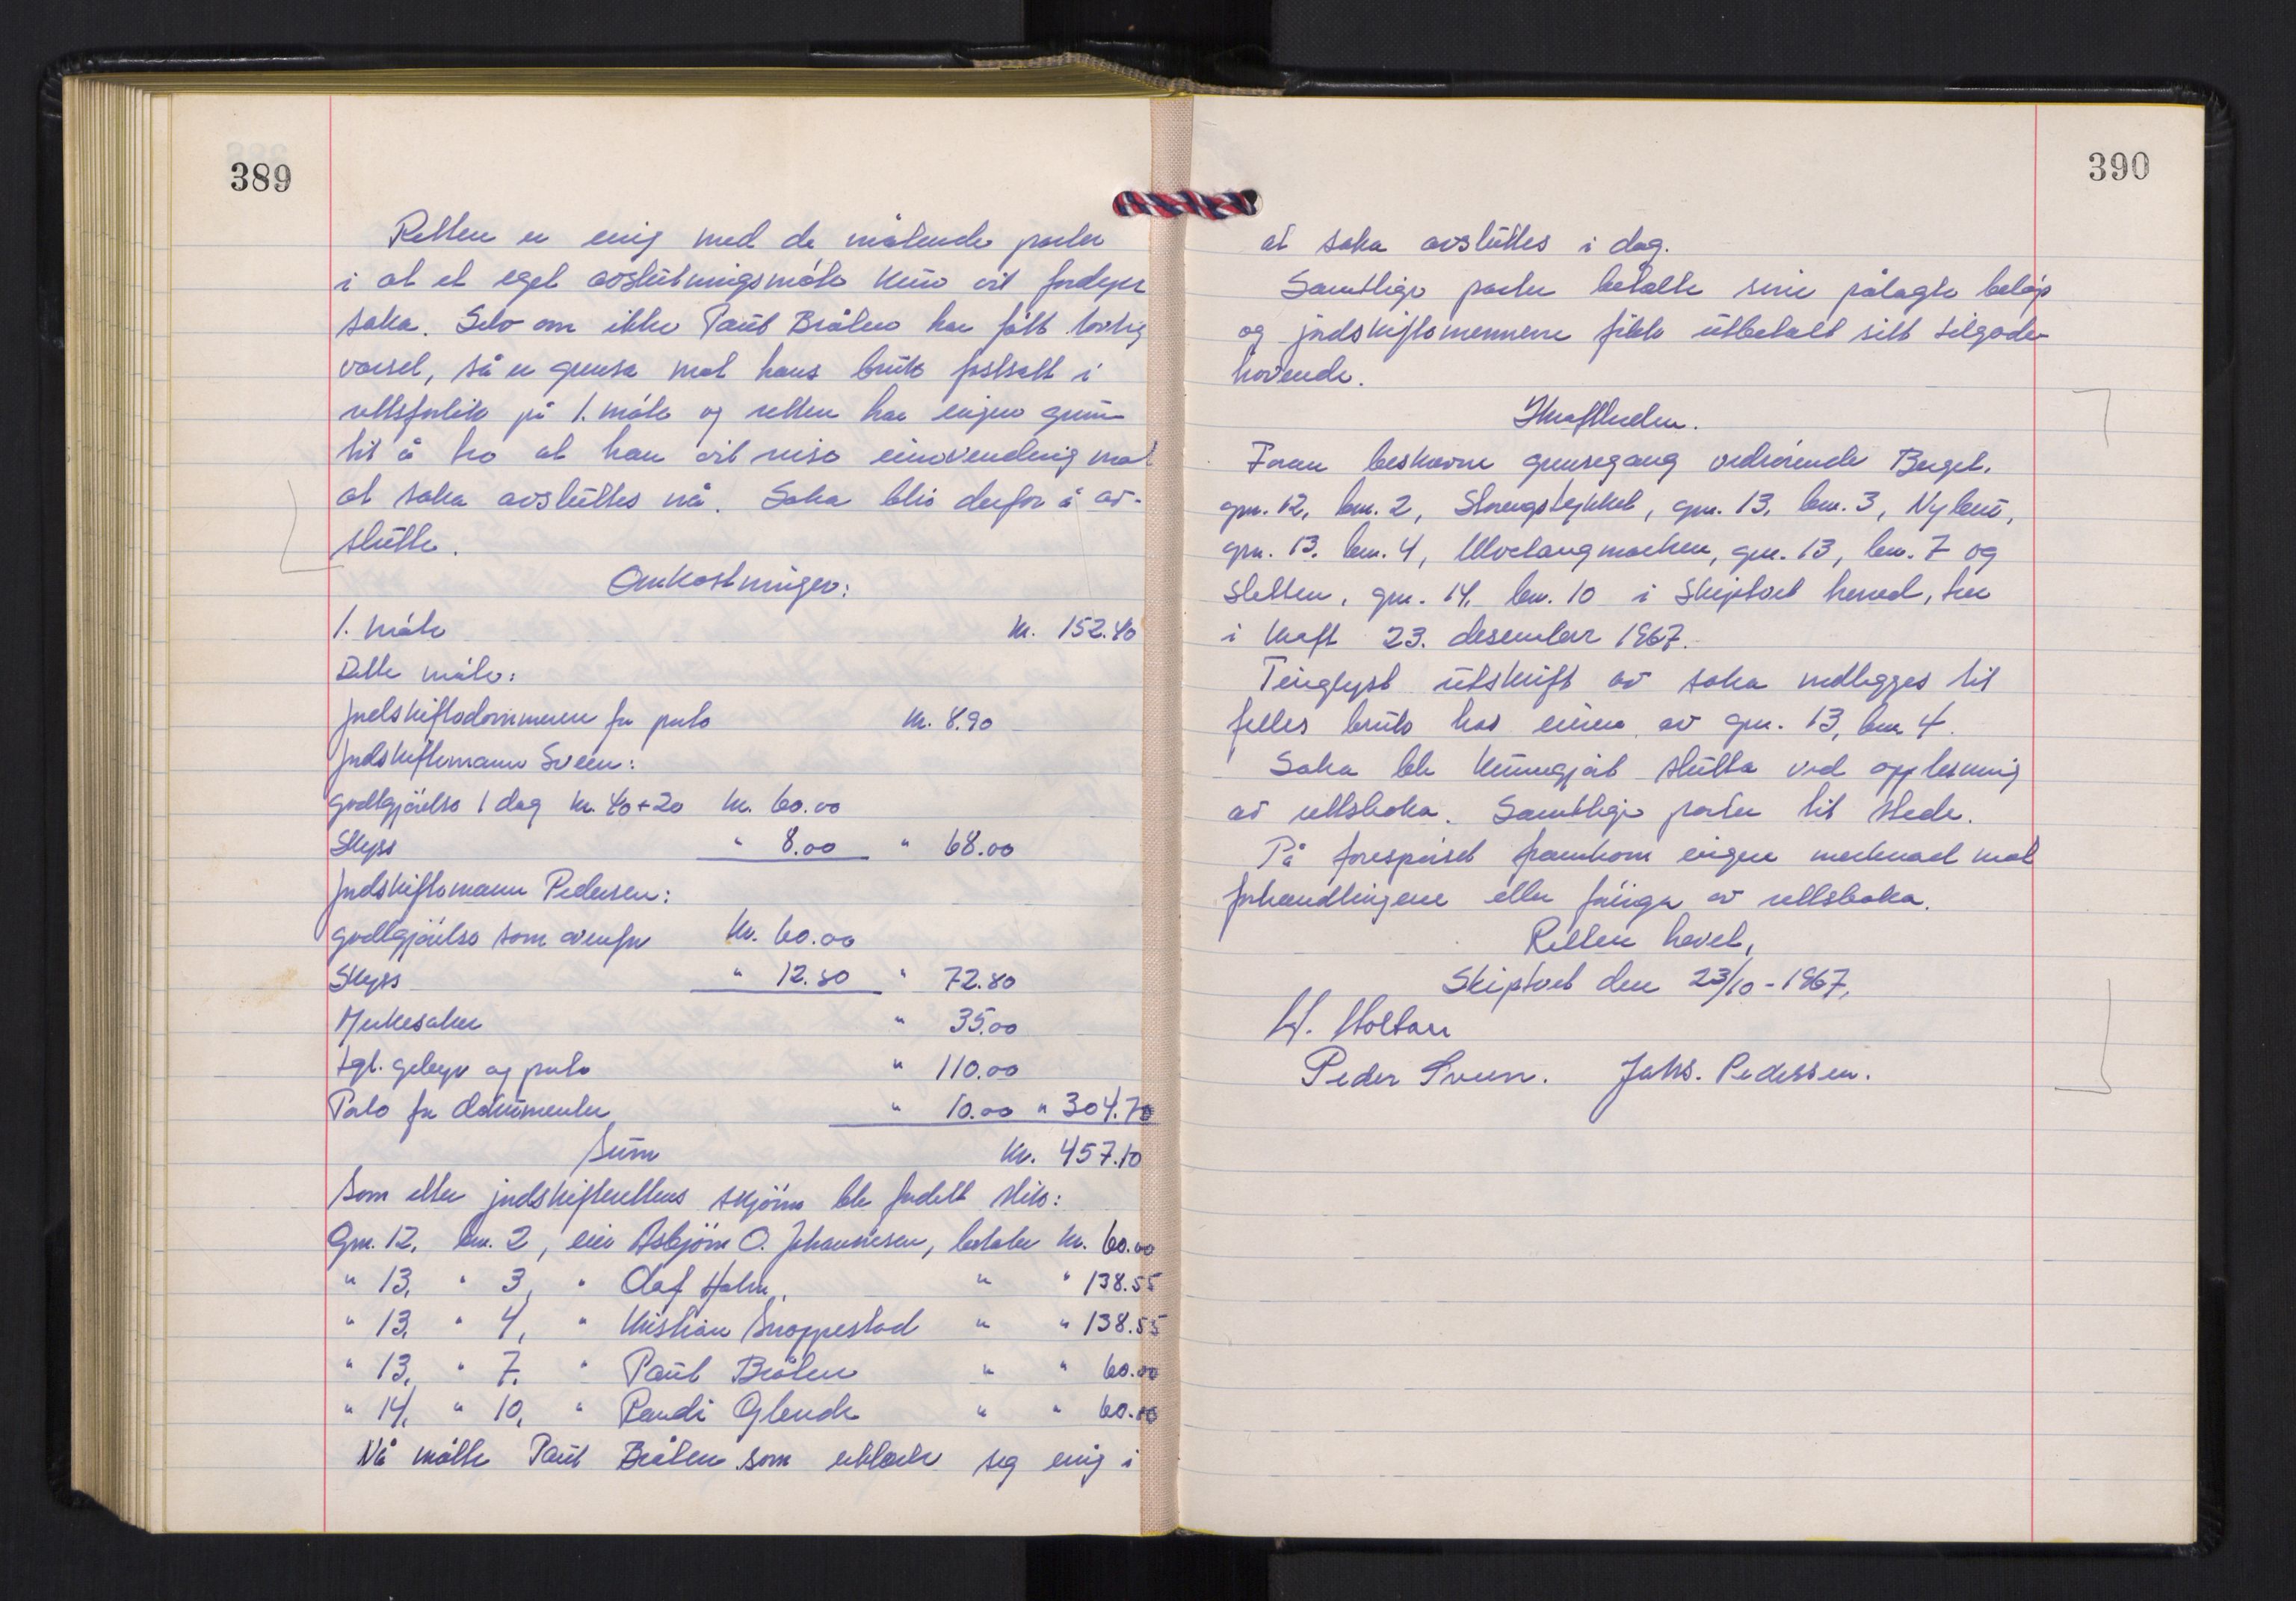 389
Retten er enig med de møtende parter
i at et eget avslutningsmøte kun vil fordyre
saka. Selv om ikke Paul Bråten har fått lovlig
varsel, så er grensa mot hans bruk fastsatt i
rettsforlik på 1. møte og retten har ingen grunn
til å tro at han vil reise innvending mot
at saka avsluttes nå. Saka blir derfor å av-
slutte.
Omkostninger:
1. møte kr. 152.40
Dette møte:
Jordskiftedommeren for porto kr. 8.90
Jordskiftemann Sveen:
godtgjørelse 1 dag kr. 40+20 kr. 60.00
Skyss " 8.00 " 68.00
Jordskiftemann Pedersen:
godtgjørelse som ovenfor kr. 60.00
Skyss " 12.80 " 72.80
Merkesaker " 35.00
tgl. gebyr og porto " 110.00
Porto for dokumenter " 10.00 " 304.70
Sum kr. 457.10
Som etter jordskifterettens skjønn ble fordelt slik:
Gnr. 12, bnr. 2, eier Asbjørn O. Johannesen, betaler kr. 60.00
" 13, " 3, " Olaf Holm, " " 138.55
" 13, " 4, " Kristian Snoppestad " " 138.55
" 13, " 7, " Paul Bråten " " 60.00
" 14, " 10, " Randi Glende " " 60.00
Nå møtte Paul Bråten som erklærte seg enig i
390
at saka avsluttes i dag.
Samtlige parter betalte sine pålagte beløp
og jordskiftemennene fikk utbetalt sitt tilgode-
havende.
Ikrafttreden.
Foran beskrevne grensegang vedrørende Berget,
gnr. 12, bnr. 2, Strengstykket, gnr. 13, bnr. 3, Nybru,
gnr. 13, bnr. 4, Ulvetangmarken, gnr. 13, bnr. 7 og
Sletten, gnr. 14, bnr. 10 i Skiptvet herred, trer
i kraft 23. desember 1967.
Tinglyst utskrift av saka nedlegges til
felles bruk hos eieren av gnr. 13, bnr. 4.
Saka ble kunngjort slutta ved opplesning
av rettsboka. Samtlige parter til stede.
På forespørsel framkom ingen merknad mot
forhandlingene eller føringa av rettsboka.
Retten hevet,
Skiptvet den 23/10-1967,
H. Holtan
Peder Sveen. Johs. Pedersen.